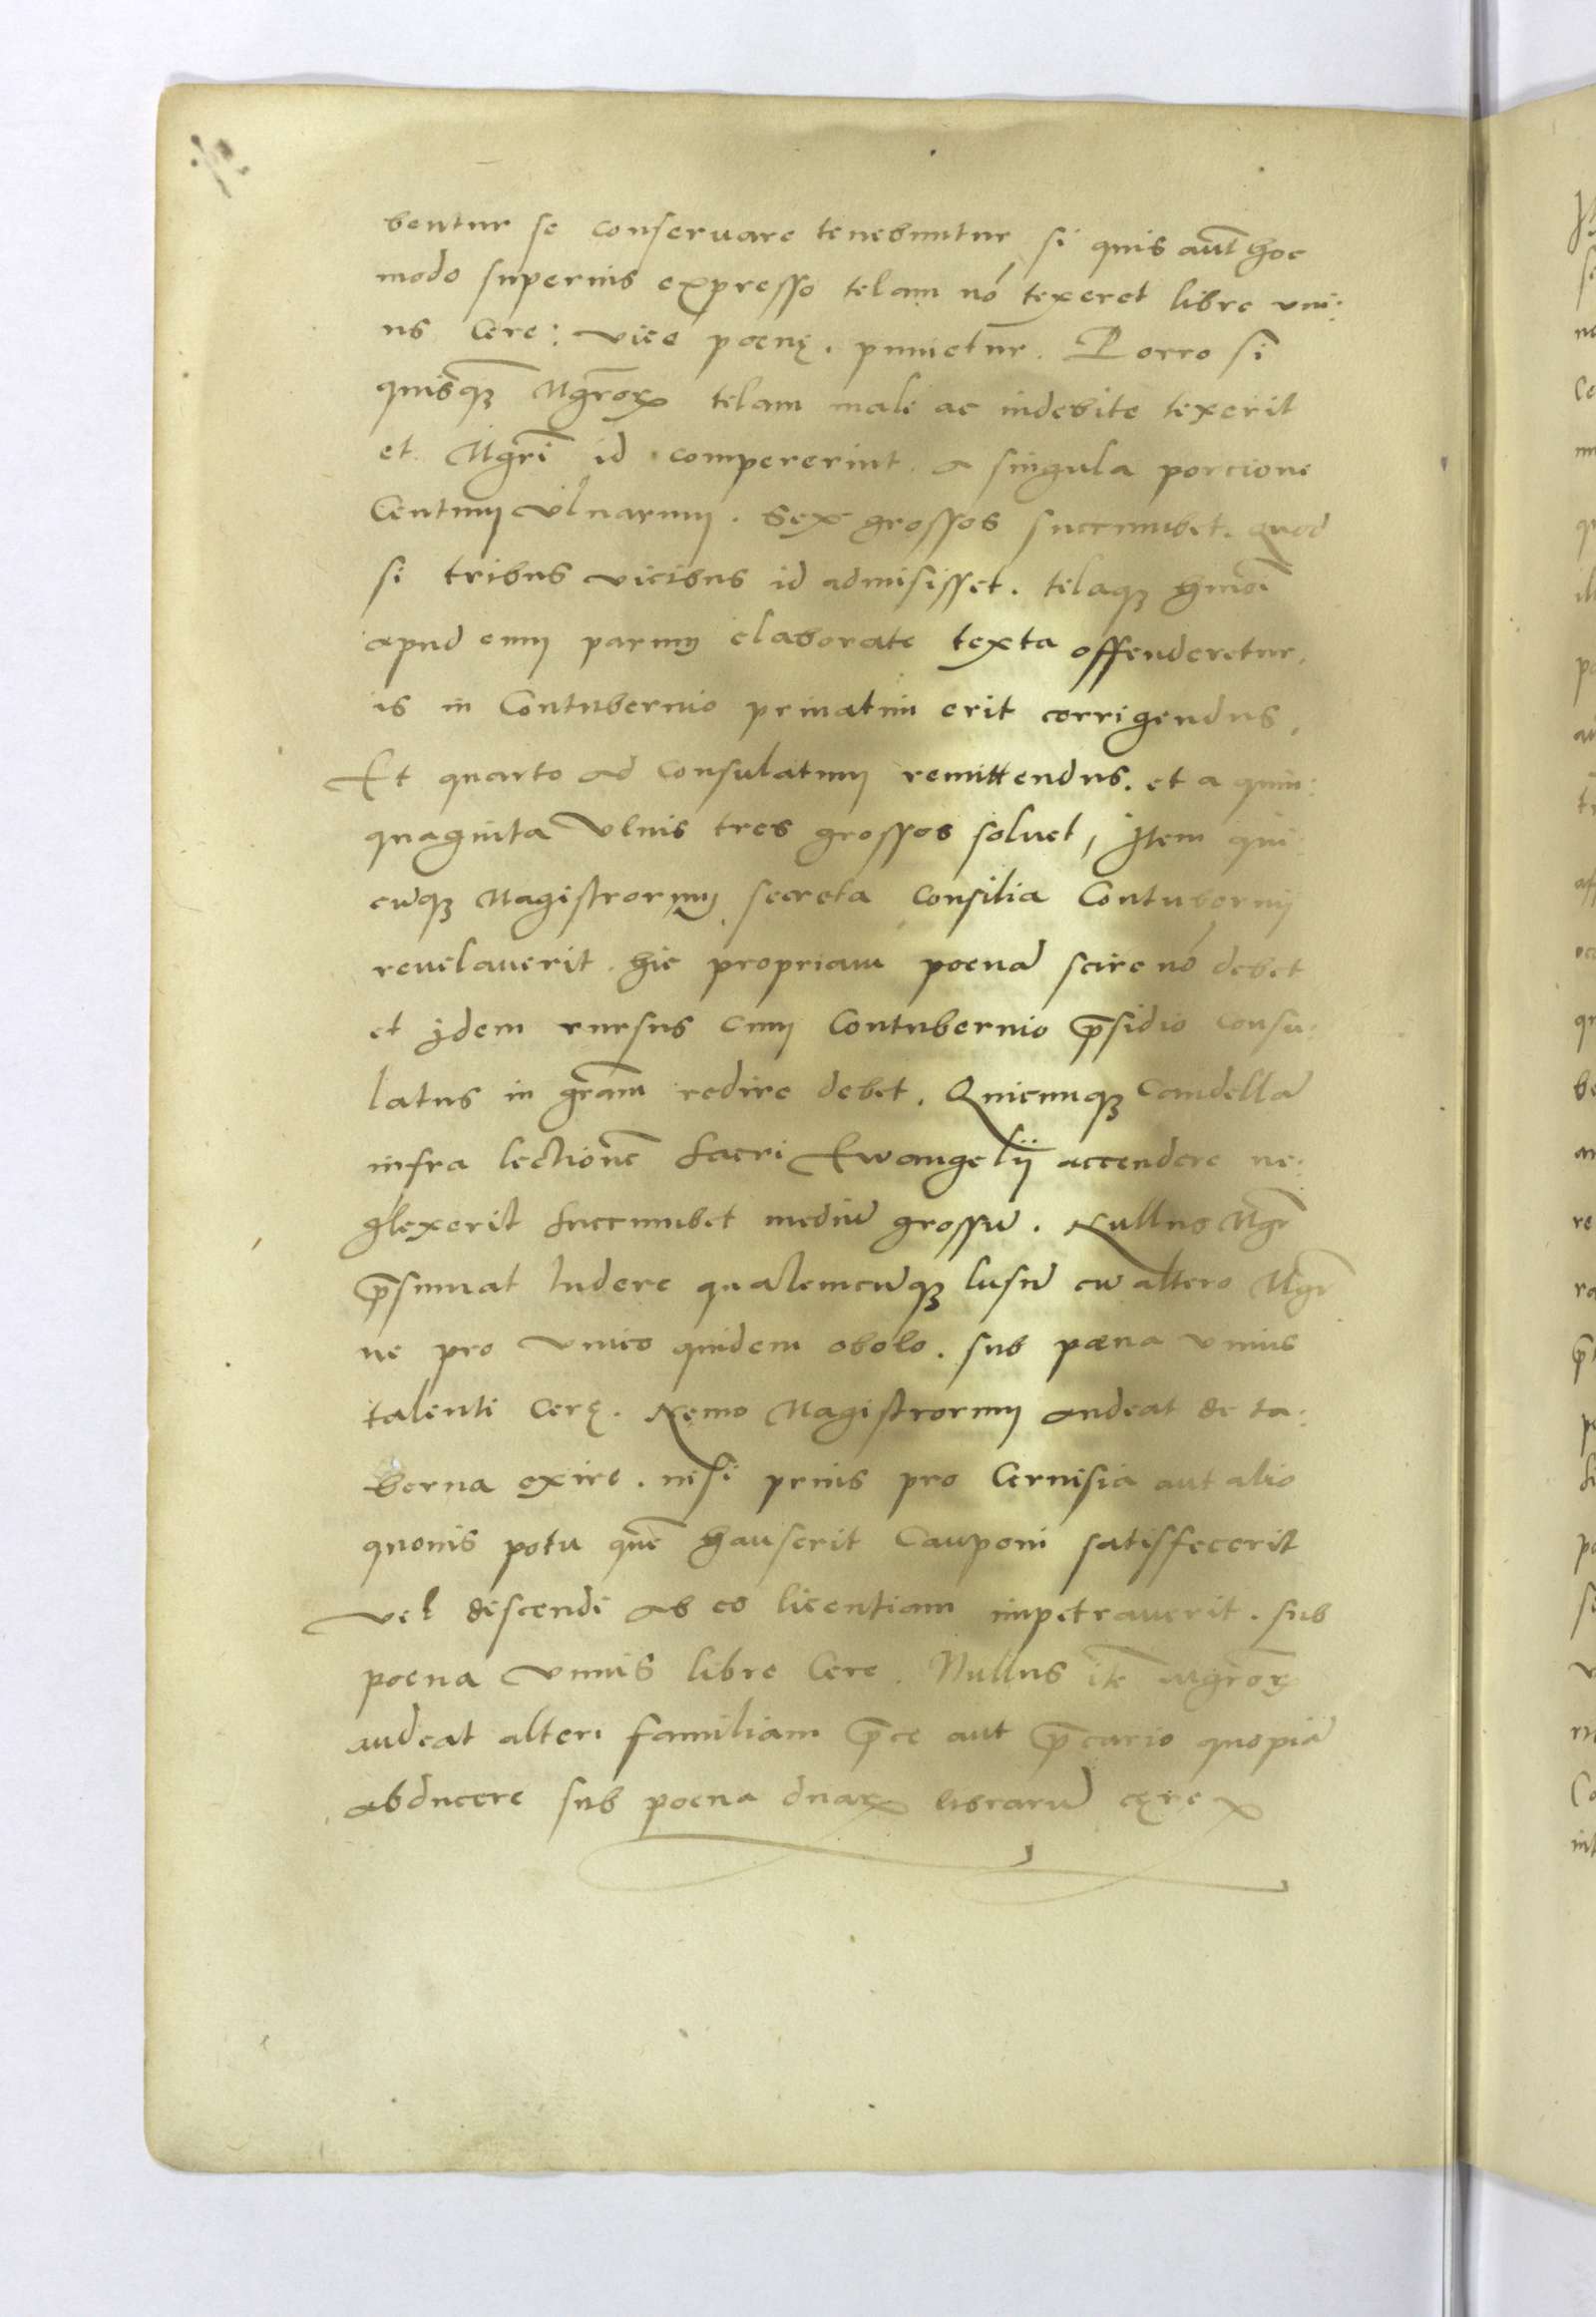 bentur se conseruare tenebuntur, si quis aut̃ hoc
modo superius expresso telam nõ texeret libre vni:
us Cere: vice poenę. punietur. Porro si
quisqꝫ Mgr̃oꝝ telam male ac indebite texerit
et Mgr̃i id compererint. a singula porcione
Centum vlnarum. Sex grossos succumbet. quod
si tribus vicibus id admisisset. telaqꝫ hmõi
apud eum parum elaborate texta offenderetur.
is in Contubernio priuatim erit corrigendus.
Et quarto ad Consulatum remittendus. et a quin:
quaginta vlnis tres grossos soluet, Item qui
cũqꝫ Magistrorum secreta Consilia Contubernij
reuelauerit. hic propriam poenã scire nõ debet
et ijdem rursus cum Contubernio p̃sidio Consu:
latus in gr̃am redire debet. Quicumqꝫ Candellã
infra lectionẽ Sacri Ewangelij accendere ne:
glexerit Succumbet mediũ grossũ. Nullus Mgr̃
p̃sumat ludere qualemcũqꝫ lusũ cũ altero Mgr̃
ne pro vnico quidem obolo. sub pæna vnius
talenti Cerę. Nemo Magistrorum audeat de ta:
berna exire. nisi prius pro Ceruisia aut alio
quouis potu quẽ hauserit Cauponi satisfecerit
vel discendi ab eo licentiam impetrauerit. sub
poena vnius libre Cere. Nullus itẽ mgr̃oꝝ
audeat alteri familiam p̃ce aut p̃cario quopiã
abducere sub poena duaꝝ librarũ cęre